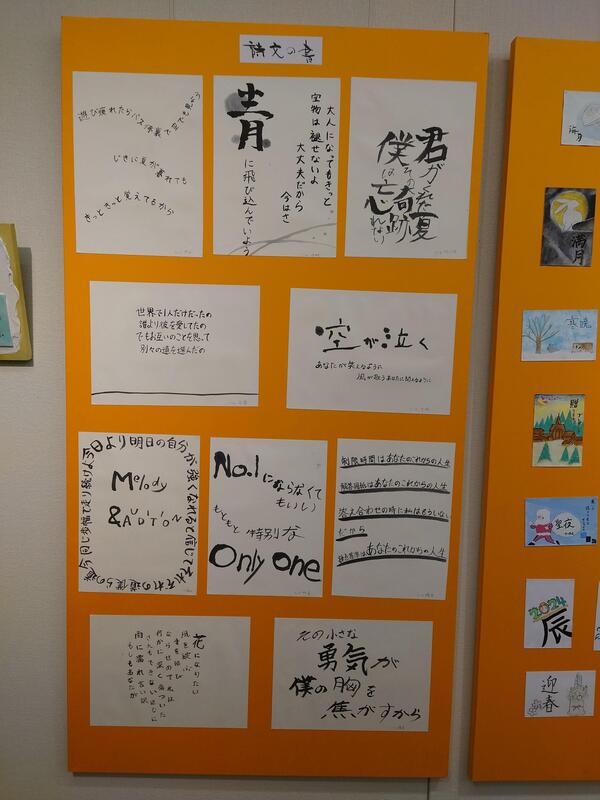 詩文の書
遊び疲れたらバス停裏で空でも見よう
じきに夏が暮れても
きっときっと覚えてるから
大人になってもきっと
宝物は褪せないよ
大丈夫だから
今はさ
青に飛び込んでいよう
君がくれた夏
僕はその奇跡
忘れない
世界で1人だけだったの
誰より彼を愛してたの
でもお互いのことを思って
別々の道を選んだの
空が泣く
あなたが笑えるように
風が歌うあなたに聞こえるように
今日より明日の自分が強くなれると信じて
それぞれの道僕らの道今同じ歩幅で走り続けよう
Melody
&AUDITION
No.1にならなくて
もいい
もともと特別な
Only one
制限時間はあなたのこれからの人生
解答用紙はあなたのこれからの人生
答え合わせの時に私はもういない
だから
採点基準はあなたのこれからの人生
花になりたい
風を
もしもあなたが
その小さな
勇気が
僕の胸を
焦がすから
海月
満月
聖夜
2024
辰
迎春